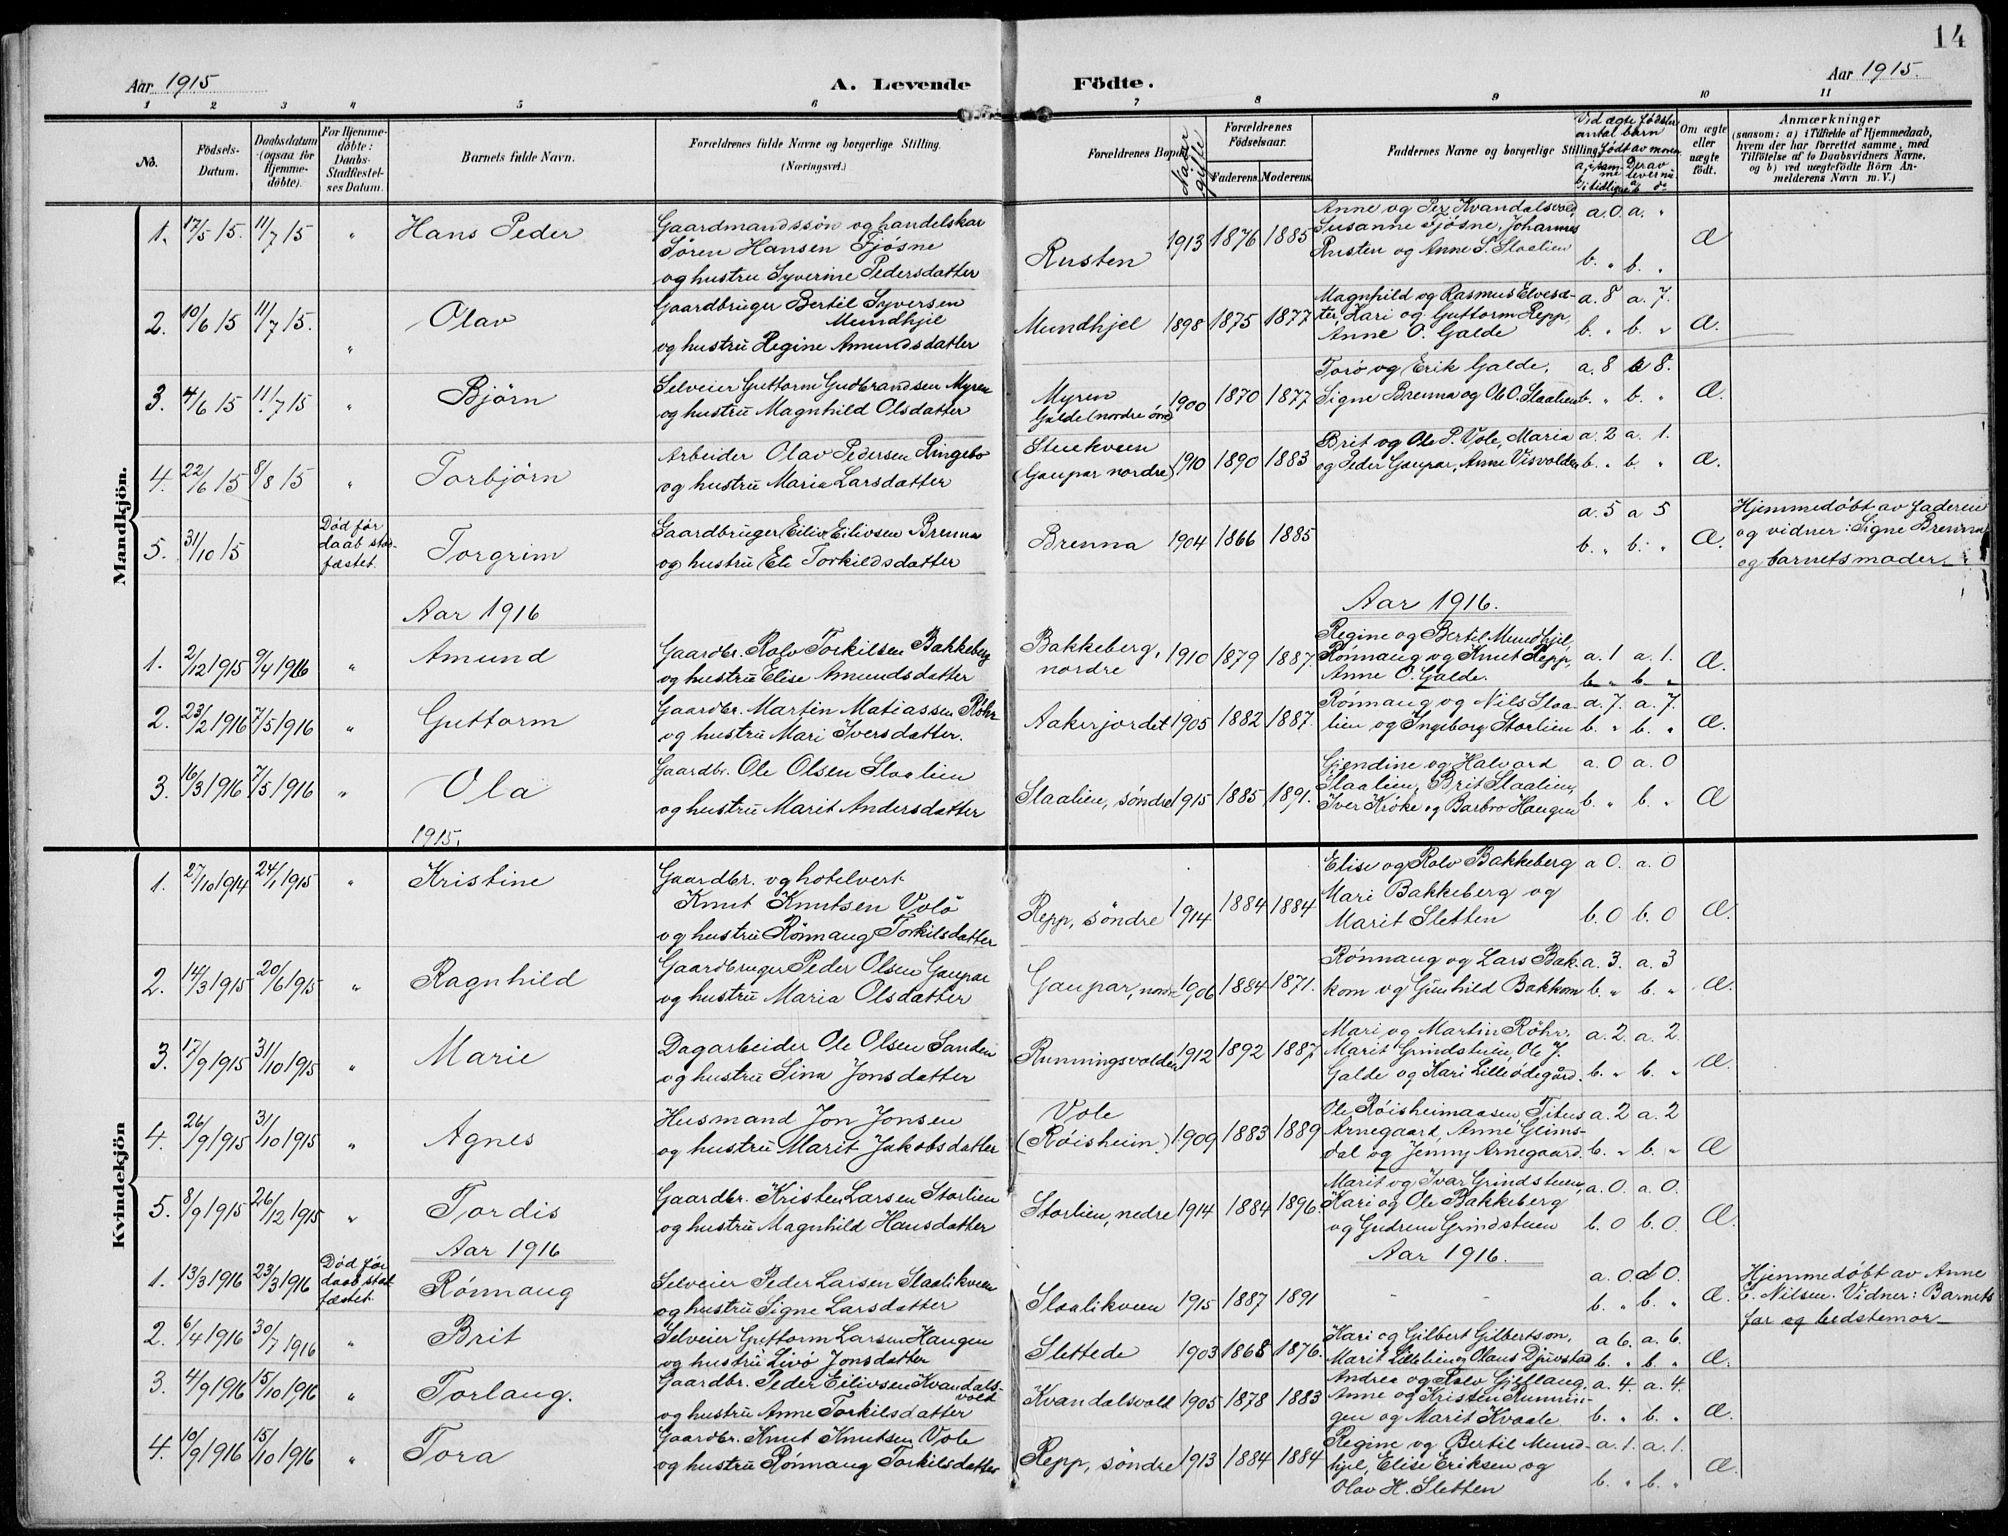 14
Aar 1915
A. Levende Födte.
Aar 1915.
1 2 3 4 5 6 7 8 9 10 11
No.
Födsels-
Datum.
Daabsdatum
(ogsaa for
Hjemme-
døbte).
For Hjemme-
døbte:
Daabs-
Stadfæstel-
ses Datum.
Barnets fulde Navn.
Forældrenes fulde Navne og borgerlige Stilling.
(Næringsvei.)
Forældrenes Bopæl
Naar gifte
Forældrenes
Fødselsaar.
Faderens. Moderens.
Faddernes Navne og borgerlige Stilling
Vid ægte fødsler
antal barn
født av moren
Om ægte
eller
uægte
født.
Anmærkninger
(saasom: a) i Tilfælde af Hjemmedaab,
hvem der har forrettet samme, med
Tilføielse af to Daabsvidners Navne,
og b) ved uægtefødte Börn An-
melderens Navn m. V.)
Mandkjön.
1. 17/5 15. 11/7 15 " Hans Peder
Gaardmandssøn og handelskar
Søren Hansen Fjøsne
og hustru Syverine Pedersdatter
Rusten 1913 1876 1885
Anne og Per Kvandalsvold,
Susanne Fjøsne, Johannes
Rusten og Anne S. Slaalien
a. 0 a. "
b. " b. "
Æ
2. 10/6 15 11/7 15. " Olav
Gaardbruger Bertil Syversen
Mundhjel
og hustru Regine Amundsdatter
Mundhjel 1898 1875 1877
Magnhild og Rasmus Elvesæ-
ter, Kari og Guttorm Repp,
Anne O. Galde
a. 8 a. 7.
b. " b. "
Æ.
3. 4/6 15 11/7 15 " Bjørn
Selveier Guttorm Gudbrandsen Myren
og hustru Magnhild Olsdatter
Myren
Galde (nordre øvre) 1900 1870 1877
Torø og Erik Galde,
Signe Brenna og Ole O. Slaalien
a. 8 a 8.
b. " b. "
Æ.
4. 22/6 15 8/8 15 " Torbjørn
Arbeider Olav Pedersen Ringebo
og hustru Maria Larsdatter
Steukveen
(Gaupar nordre) 1910 1890 1883
Brit og Ole P. Vole, Maria
og Peder Gaupar, Anne Visvolden
a. 2 a. 1.
b. " b. "
Æ.
5. 31/10 15 Død før
daab stad-
fæstet. Torgrim
Gaardbruger Eiliv Eilivsen Brenna
og hustru Ete Torkildsdatter
Brenna 1904 1866 1885
a. 5 a 5
b. " b. "
Æ.
Hjemmedøbt av faderen
og vidner: Signe Brenna
og barnets moder.
Aar 1916
Aar 1916.
1. 2/12 1915 9/4 1916 " Amund
Gaardbr. Rolv Torkilsen Bakkeberg
og hustru Elise Amundsdatter
Bakkeberg,
nordre 1910 1879 1887.
Regine og Bertil Mundhjel,
Rønnaug og Knut Repp,
Anne O. Galde.
a. 1 a. 1.
b. " b. "
Æ.
2. 23/2 1916 7/5 1916 " Guttorm
Gaardbr. Martin Matiassen Røhr
og hustru Mari Iversdatter.
Aakerjordet 1905 1882 1887.
Rønnaug og Nils Slaa-
lien og Ingeborg Storlien
a. 7. a. 7.
b. " b. "
Æ.
3. 16/3 1916 7/5 1916 " Ola
Gaardbr. Ole Olsen Slaalien
og hustru Marit Andersdatter
Slaalien, søndre 1915 1885 1891.
Gjendine og Halvord
Slaalien, Brit Slaalien,
Iver Krøke og Barbro Haugen
a. 0 a. 0
b. " b. "
Æ
1915.
Kvindekjön
1. 27/10 1914 24/1 1915 " Kristine
Gaardbr. og hotelvert
Knut Knutsen Volø
og hustru Rønnaug Torkilsdatter
Repp, søndre 1914 1884 1884
Elise og Rolv Bakkeberg
Mari Bakkeberg og
Marit Sletten
a 0. a. 0
b. 0 b. 0
Æ.
2. 14/3 1915 20/6 1915 " Ragnhild
Gaardbruger Peder Olsen Gaupar
og hustru Maria Olsdatter
Gaupar, nordre 1906 1884 1871.
Rønnaug og Lars Bak-
kom og Gunhild Bakkom
a. 3. a. 3
b. " b. "
Æ.
3. 17/9 1915 31/10 1915 " Marie
Dagarbeider Ole Olsen Sanden
og hustru Sina Jonsdatter
Runningsvolden 1912 1892 1887
Mari og Martin Røhr,
Marit Grindstuen, Ole J.
Galde og Kari Lilleødegård.
a. 2. a. 2.
b. " b. "
Æ.
4. 26/9 1915 31/10 1915 " Agnes
Husmand Jon Jonsen
og hustru Marit Jakobsdatter
Vole
(Røisheim) 1909 1883 1889
Ole Røisheimaasen, Titus
Arnegaard, Anne Glims-
dal og Jenny Arnegaard.
a. 2 a. 2
b. " b. "
Æ
5. 8/9 1915 26/12 1915 " Tordis
Gaardbr. Kristen Larsen Storlien
og hustru Magnhild Hansdatter
Storlien, nedre 1914 1884 1896.
Marit og Ivar Grindstuen,
Kari og Ole Bakkeberg
og Gudrun Grindstuen
a. 0. a. 0.
b. 0 b. 0.
Æ.
Aar 1916
Aar 1916.
1. 13/3 1916 23/3 1916 Død før
daab stad
fæstet. Rønnaug
Selveier Peder Larsen Slaalikveen
og hustru Signe Larsdatter
Slaalikveen 1915 1887 1891
a. 0. a 0.
b. " b. "
Æ.
Hjemmedøbt av Anne
E. Nilsen. Vidner: Barnets
far og bedstemor
2. 6/4 1916 30/7 1916 " Brit
Selveier Guttorm Larsen Haugen
og hustru Livø Jonsdatter
Slettede 1903 1868 1876.
Kari og Gilbert Gilbertson,
Marit Lillelien og Olaus Djupstad
a 6. a. 6.
b. " b. "
Æ.
3. 4/9 1916 15/10 1916 " Torlaug.
Gaardbr. Peder Eilivsen Kvandals-
vold
og hustru Anne Torkilsdatter
Kvandalsvold 1905 1878 1883
Andrea og Rolv Gjeflaug,
Anne og Kristen Runnin-
gen og Marit Kvaale
a. 4. a. 4.
b. " b. "
Æ.
4. 10/9 1916 15/10 1916 " Tora
Gaardbr. Knut Knutsen Vole
og hustru Rønnaug Torkilsdatter
Repp, søndre 1913 1884 1884
Regine og Bertil Mund-
hjel, Elise Eriksen og
Olav H. Sletten
a. 1. a. 1.
b. " b. "
Æ.